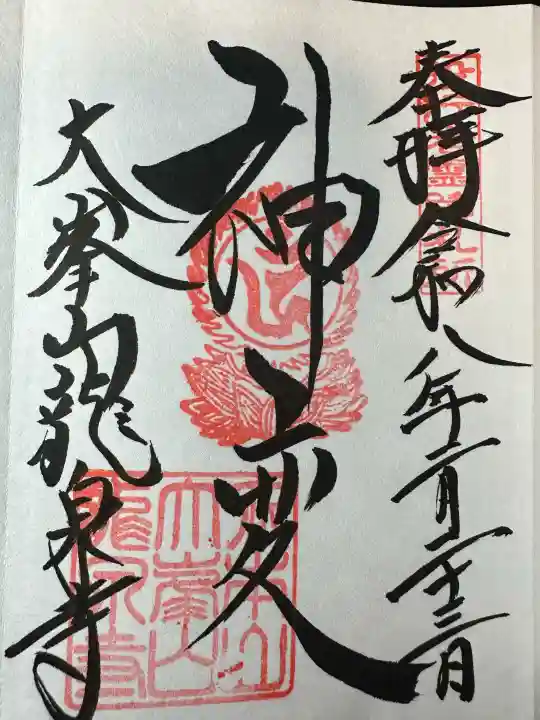 奉拝 令和八年二月二十三日
神変
大峯山龍泉寺
大峯山
龍泉寺